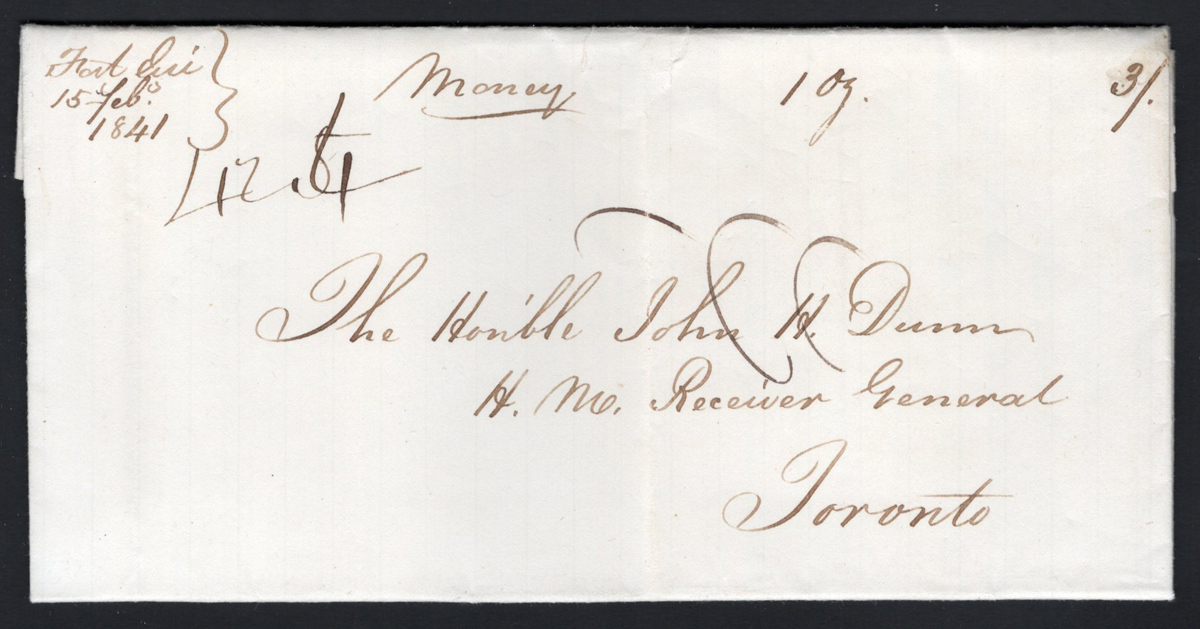 Fort Erie
15 Feb.
1841
Money
1 Oz.
3/.
The Honble John H. Dunn
H. M. Receiver General
Toronto